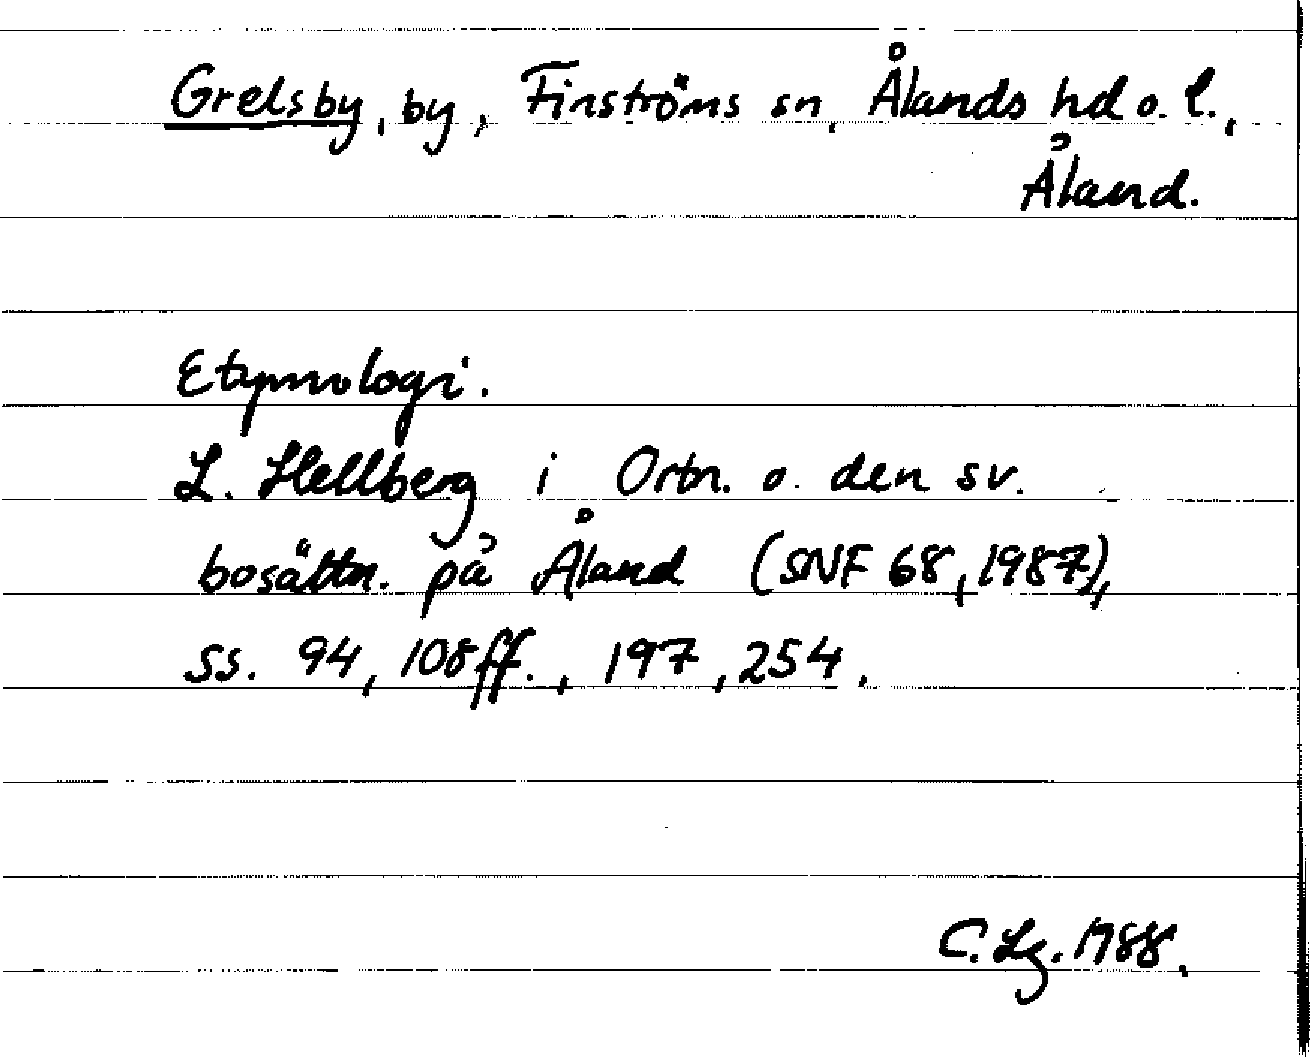 Grelsby, by, Finströms sn, Ålands hd o. l.,
Åland.
Etymologi.
L. Hellberg i Ortn. o. den sv.
bosättn. på Åland (SNF 68, 1987),
ss. 94, 108ff., 197, 254.
C. Lg. 1988.